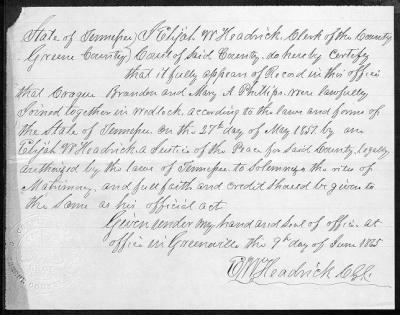 State of Tennessee) I Elijah W Headrick Clerk of the County
Greene County) Court of Said County do hereby Certify
that it fully appears of Record in this office
that Brandon and Mary A Phillips were lawfully
Joined together in wedlock according to the laws and forms of
the State of Tennessee on the 27th day of May 1851 by me
Elijah W Headrick a Justice of the Peace for Said County legally
authorized by the laws of Tennessee to Solemnize the rites of
Matrimony and full faith and Credit Should be given to
the Same as his official act
Given under my hand and Seal of office at
office in Greeneville the 9th day of June
E W Headrick Clk